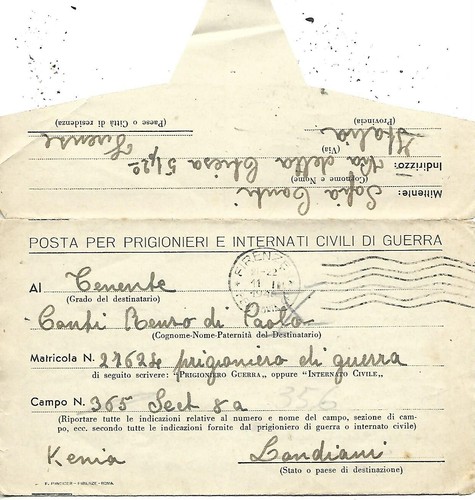 Mittente: Sofia Conti
(Cognome e Nome)
Indirizzo: Via della Chiesa 51 p 2º
(Via)
Italia Firenze
(Provincia) (Paese o Città di residenza)
POSTA PER PRIGIONIERI E INTERNATI CIVILI DI GUERRA
FIRENZE
Al Tenente
(Grado del destinatario)
Conti Renzo di Paolo
(Cognome-Nome-Paternità del Destinatario)
Matricola N. 27624 prigioniero di guerra
di seguito scrivere: "PRIGIONIERO GUERRA" oppure "INTERNATO CIVILE"
Campo N. 365 Sect 8a 356
(Riportare tutte le indicazioni relative al numero e nome del campo, sezione di cam-
po, ecc. secondo tutte le indicazioni fornite dal prigioniero di guerra o internato civile)
Kenia Londiani
(Stato o paese di destinazione)
FIRENZE-ROMA